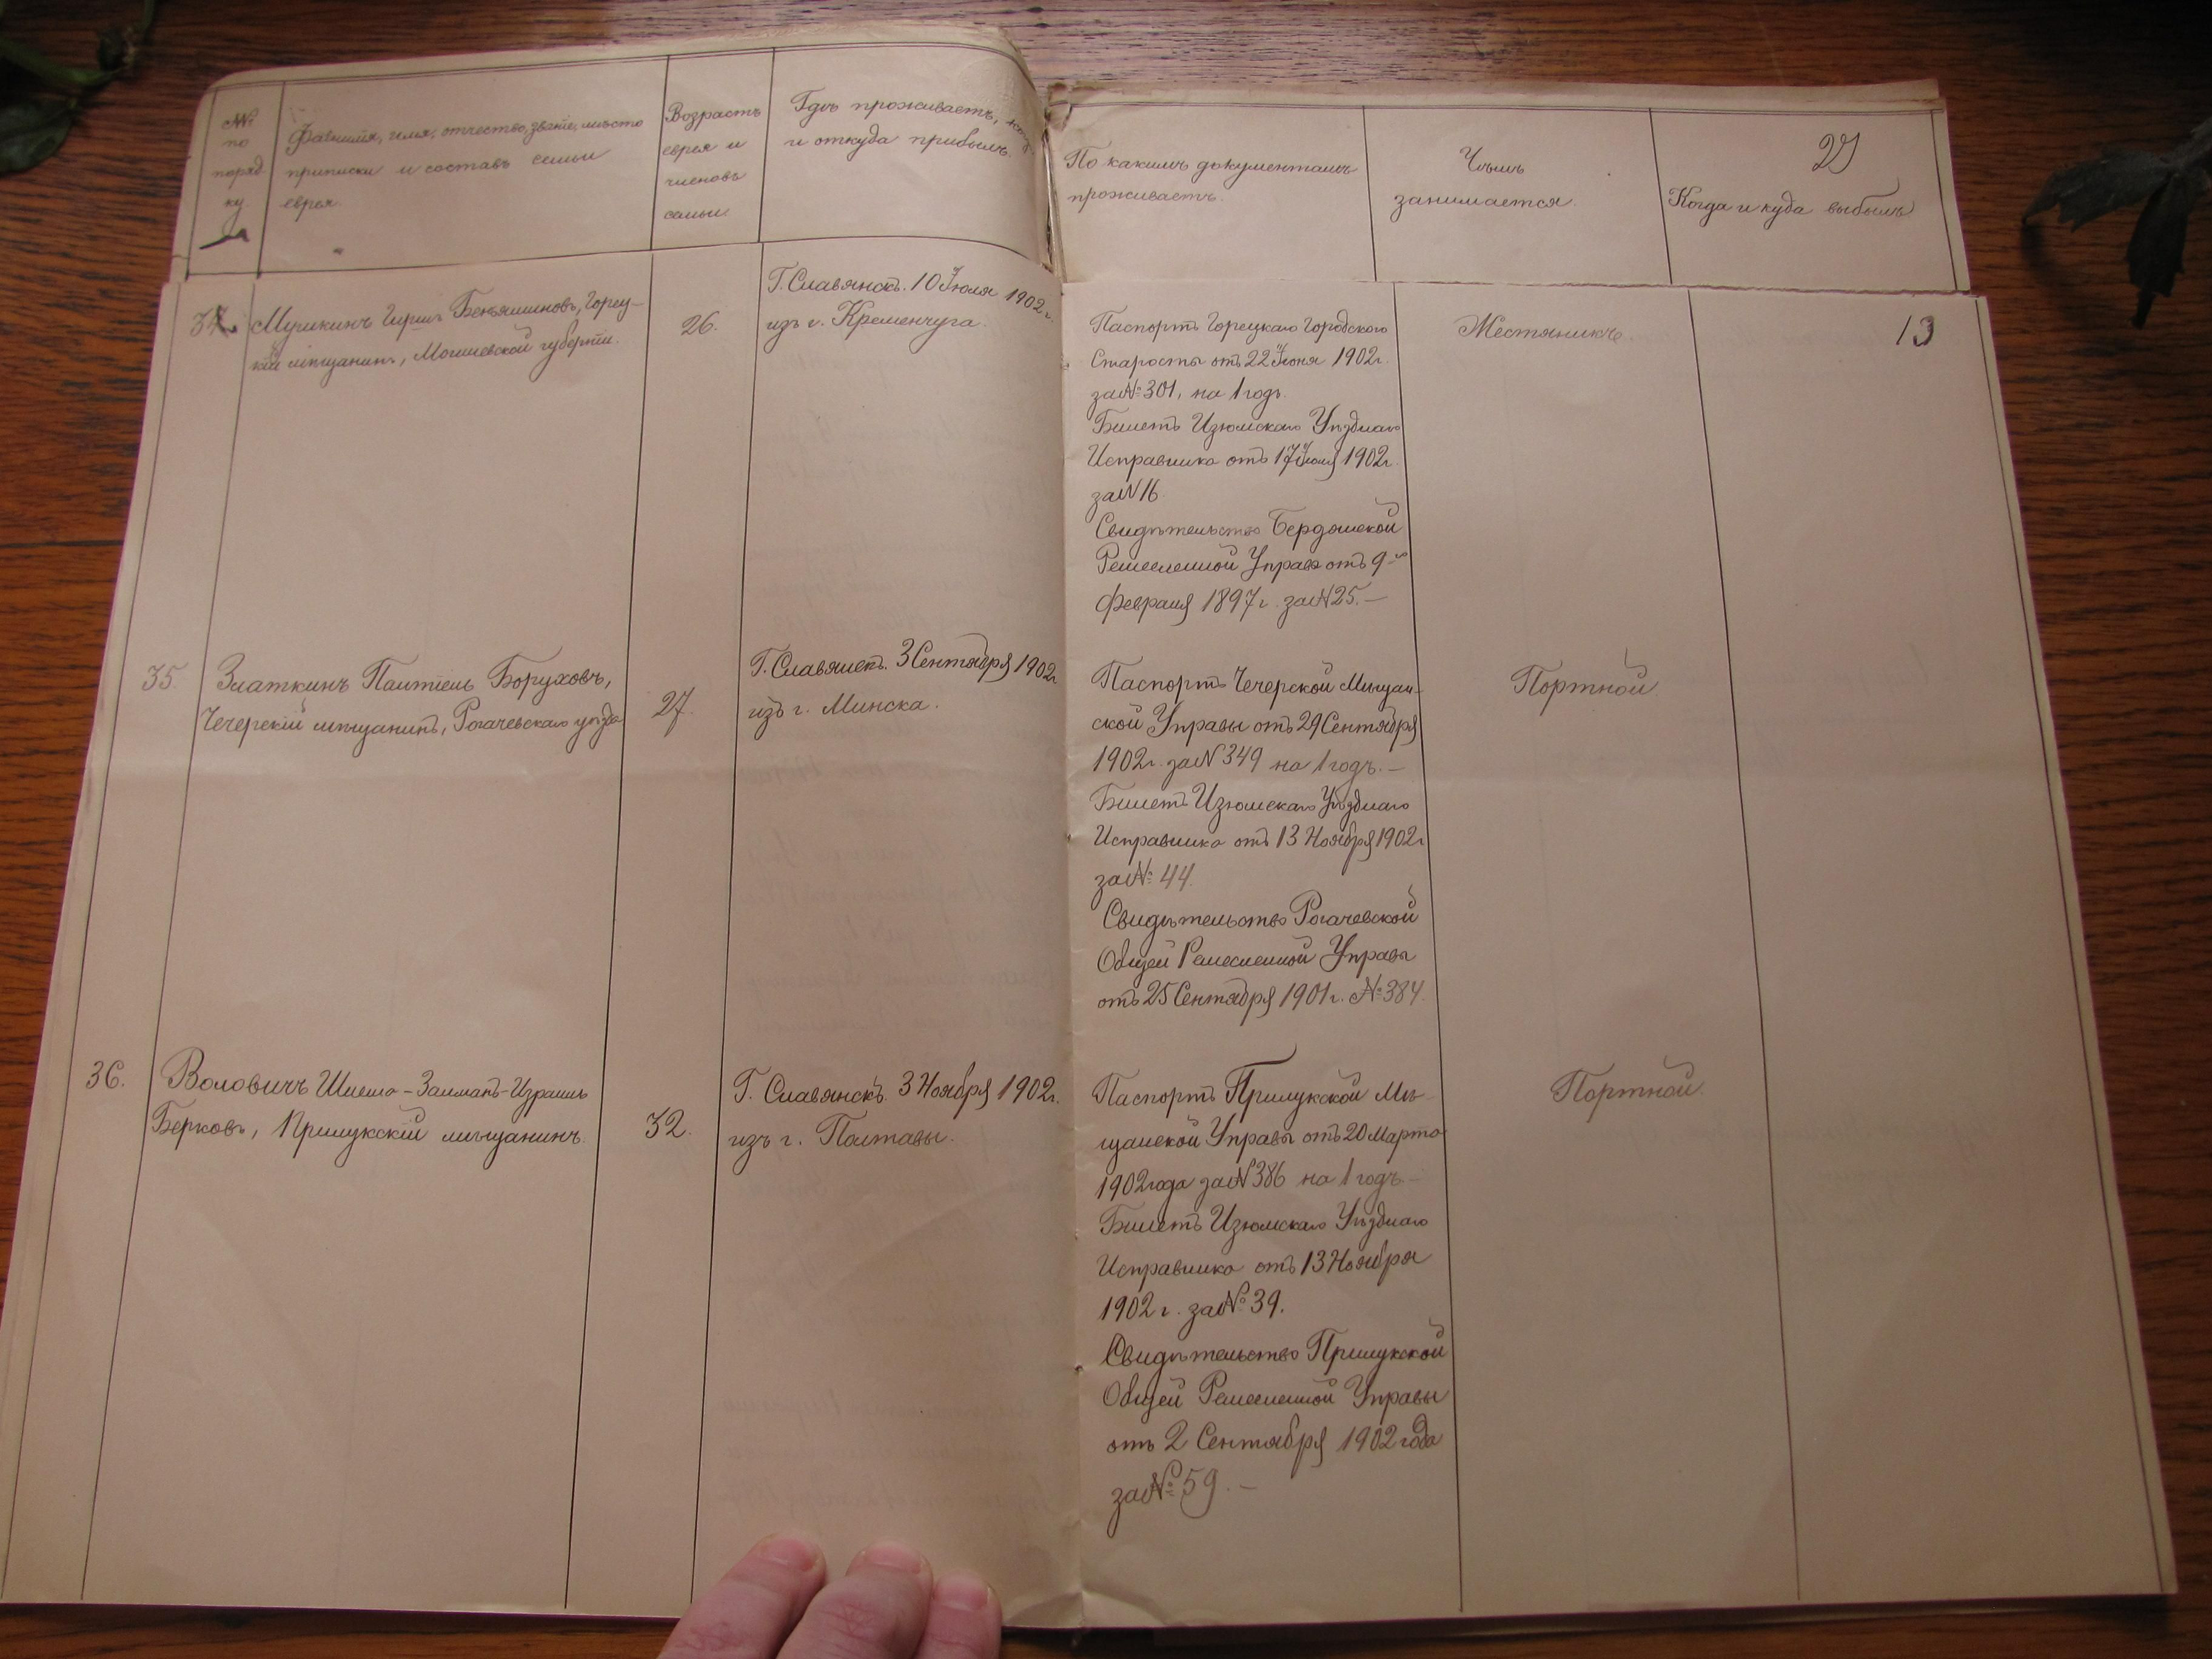 №
по
поряд
ку.
Фамилія, имя, отчество, званіе, мѣсто
приписки и составъ семьи
еврея.
Возрастъ
еврея и
членовъ
семьи
Гдѣ проживаетъ,
и откуда прибылъ.
По какимъ документамъ
проживаетъ.
Чѣмъ
занимается.
27
Когда и куда выбылъ
13
34.
Мушкинъ Гиршъ Беньяминовъ, Горец-
кій мѣщанинъ, Могилевской губерніи.
26.
Г. Славянскъ. 10 Іюля 1902 г.
изъ г. Кременчуга.
Паспортъ Горецкаго Городского
Старосты отъ 22 Іюня 1902 г.
за № 301, на 1 годъ.
Билетъ Изюмскаго Уѣзднаго
Исправника отъ 17 Іюля 1902 г.
за N 16
Свидѣтельство
Ремесленной Управы отъ 9-го
Февраля 1897 г. за N 25.—
Жестяникъ.
35.
Златкинъ Палтіель Боруховъ,
Чечерскій мѣщанинъ, Рогачевскаго уѣзда
27.
Г. Славянскъ. 3 Сентября 1902 г.
изъ г. Минска.
Паспортъ Чечерской Мѣщан-
ской Управы отъ 29 Сентября
1902 г. за N 349 на 1 годъ.—
Билетъ Изюмскаго Уѣзднаго
Исправника отъ 13 Ноября 1902 г
за № 44.
Свидѣтельство Рогачевской
Общей Ремесленной Управы
отъ 25 Сентября 1901 г. № 384.
Портной.
36.
Воловичъ Шлема-Залманъ-Израиль
Берковъ, Прилукскій мѣщанинъ.
32.
Г. Славянскъ. 3 Ноября 1902 г.
изъ г. Полтавы.
Паспортъ Прилукской Мѣ-
щанской Управы отъ 20 Марта
1902 года за N 386 на 1 годъ.—
Билетъ Изюмскаго Уѣзднаго
Исправника отъ 13 Ноября
1902 г. за № 39.
Свидѣтельство Прилукской
Общей Ремесленной Управы
отъ 2 Сентября 1902 года
за № 59.—
Портной.